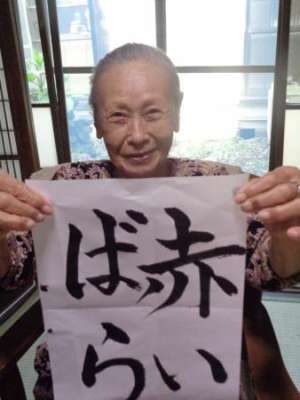 赤い
ばら